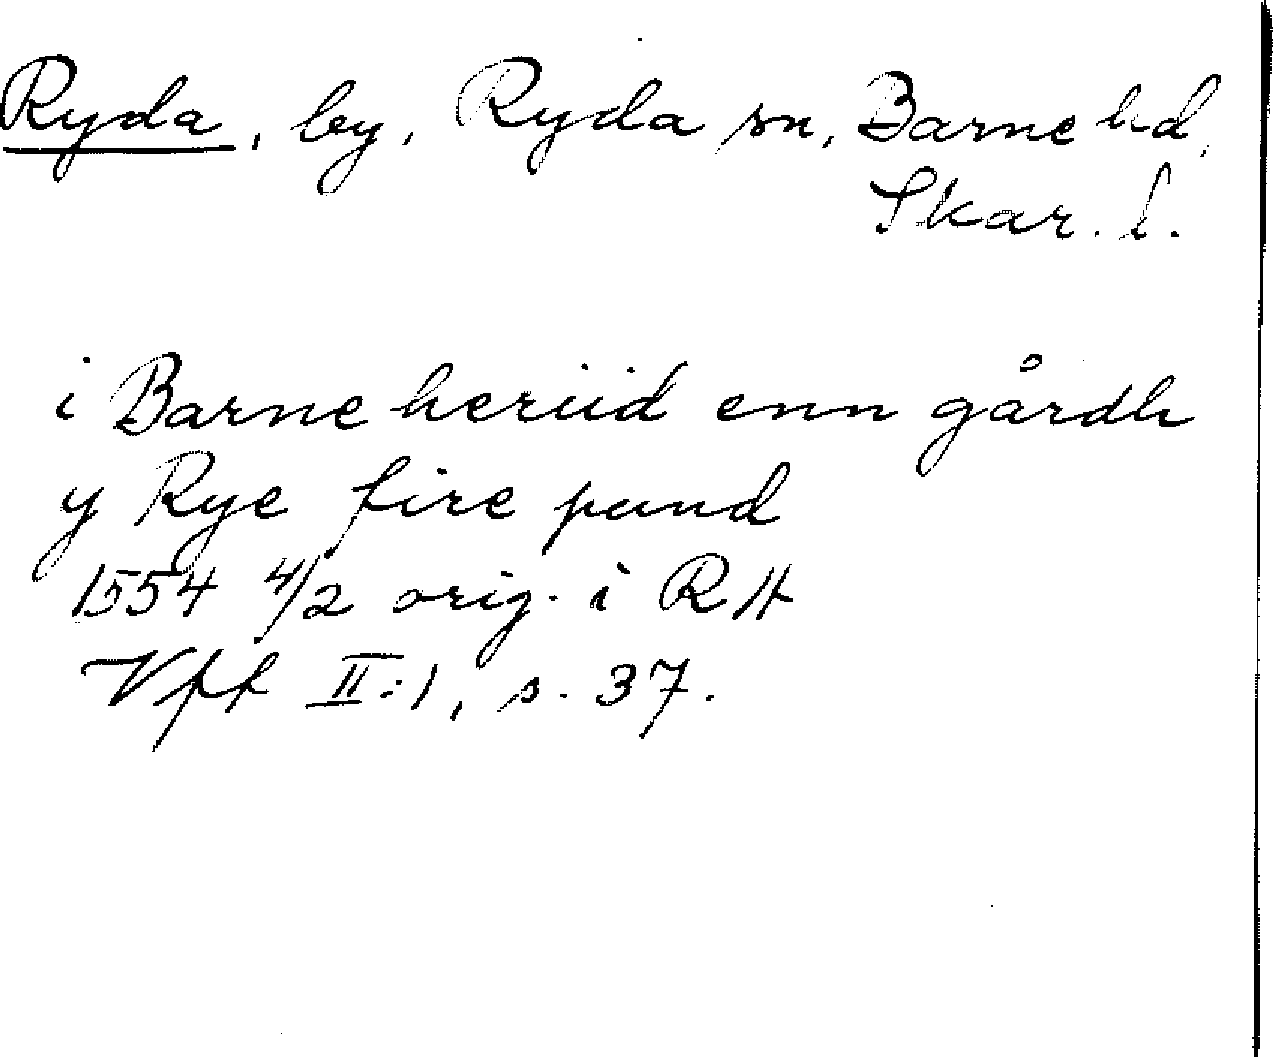 Ryda, by, Ryda sn, Barne hd,
Skar. l.
i Barne heriid enn gårdh
y Rye fire pund
1554 4/2 orig. i RH
Vff II:1, s. 37.